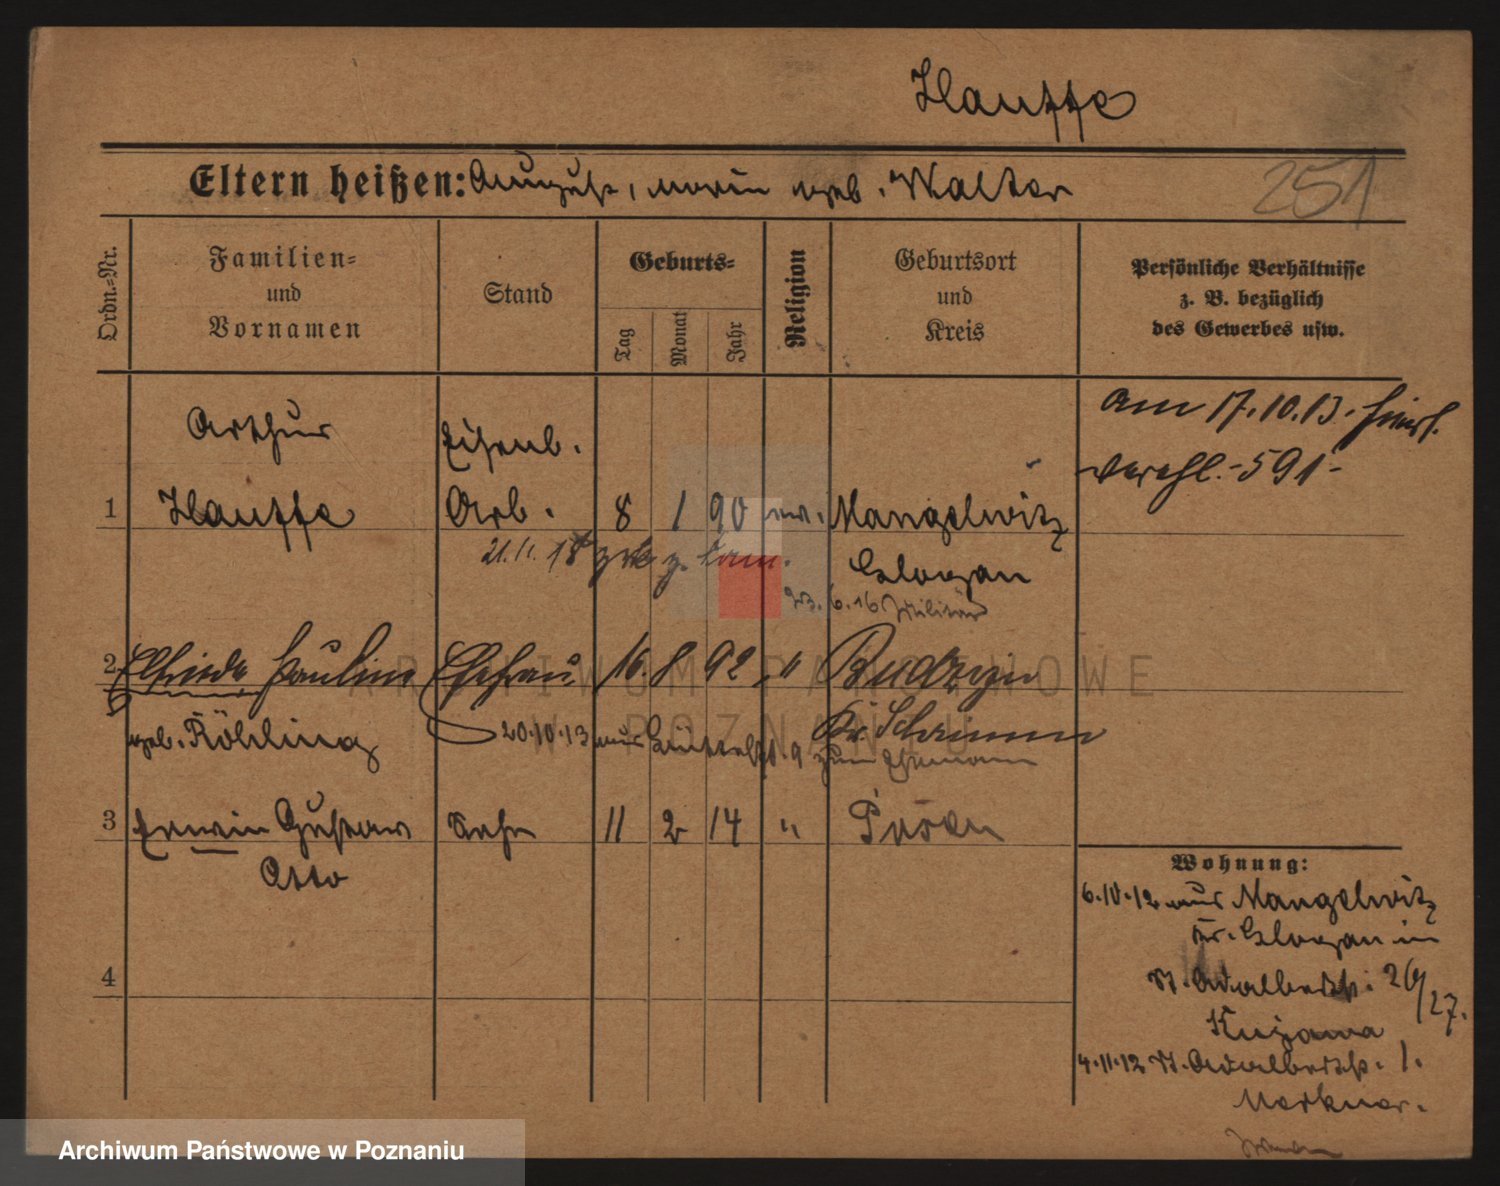 Hauffe
Eltern heißen: August, Marie geb. Walter
251
Ordn.-Nr.
Familien-
und
Vornamen
Stand
Geburts-
Tag
Monat
Jahr
Religion
Geburtsort
und
Kreis
Persönliche Verhältnisse
z. B. bezüglich
des Gewerbes usw.
Arthur
Eisenb.
am 17.10.13. hiers.
verehl. -591-
1 Hauffe Arb. 8 1 90 ev. Mangelwitz
21.11.18 zrk z. Lam.
Glogau
23.6.16 Militär
2 Elfriede Pauline Ehefrau 16. 8 92 " Budzyn
geb. Röhling
20.10.13 aus
Kr. Schamm
zum Ehemann
3 Erwin Gustav Sohn 11 2 14 " Posen
Otto
4
Wohnung:
6.10.12 aus Mangelwitz
Kr. Glogau in
St. Adalbertstr. 26/27.
Kujawa
4.11.12 St. Adalbertstr. 1.
ARCHIWUM PAŃSTWOWE
W POZNANIU
Archiwum Państwowe w Poznaniu